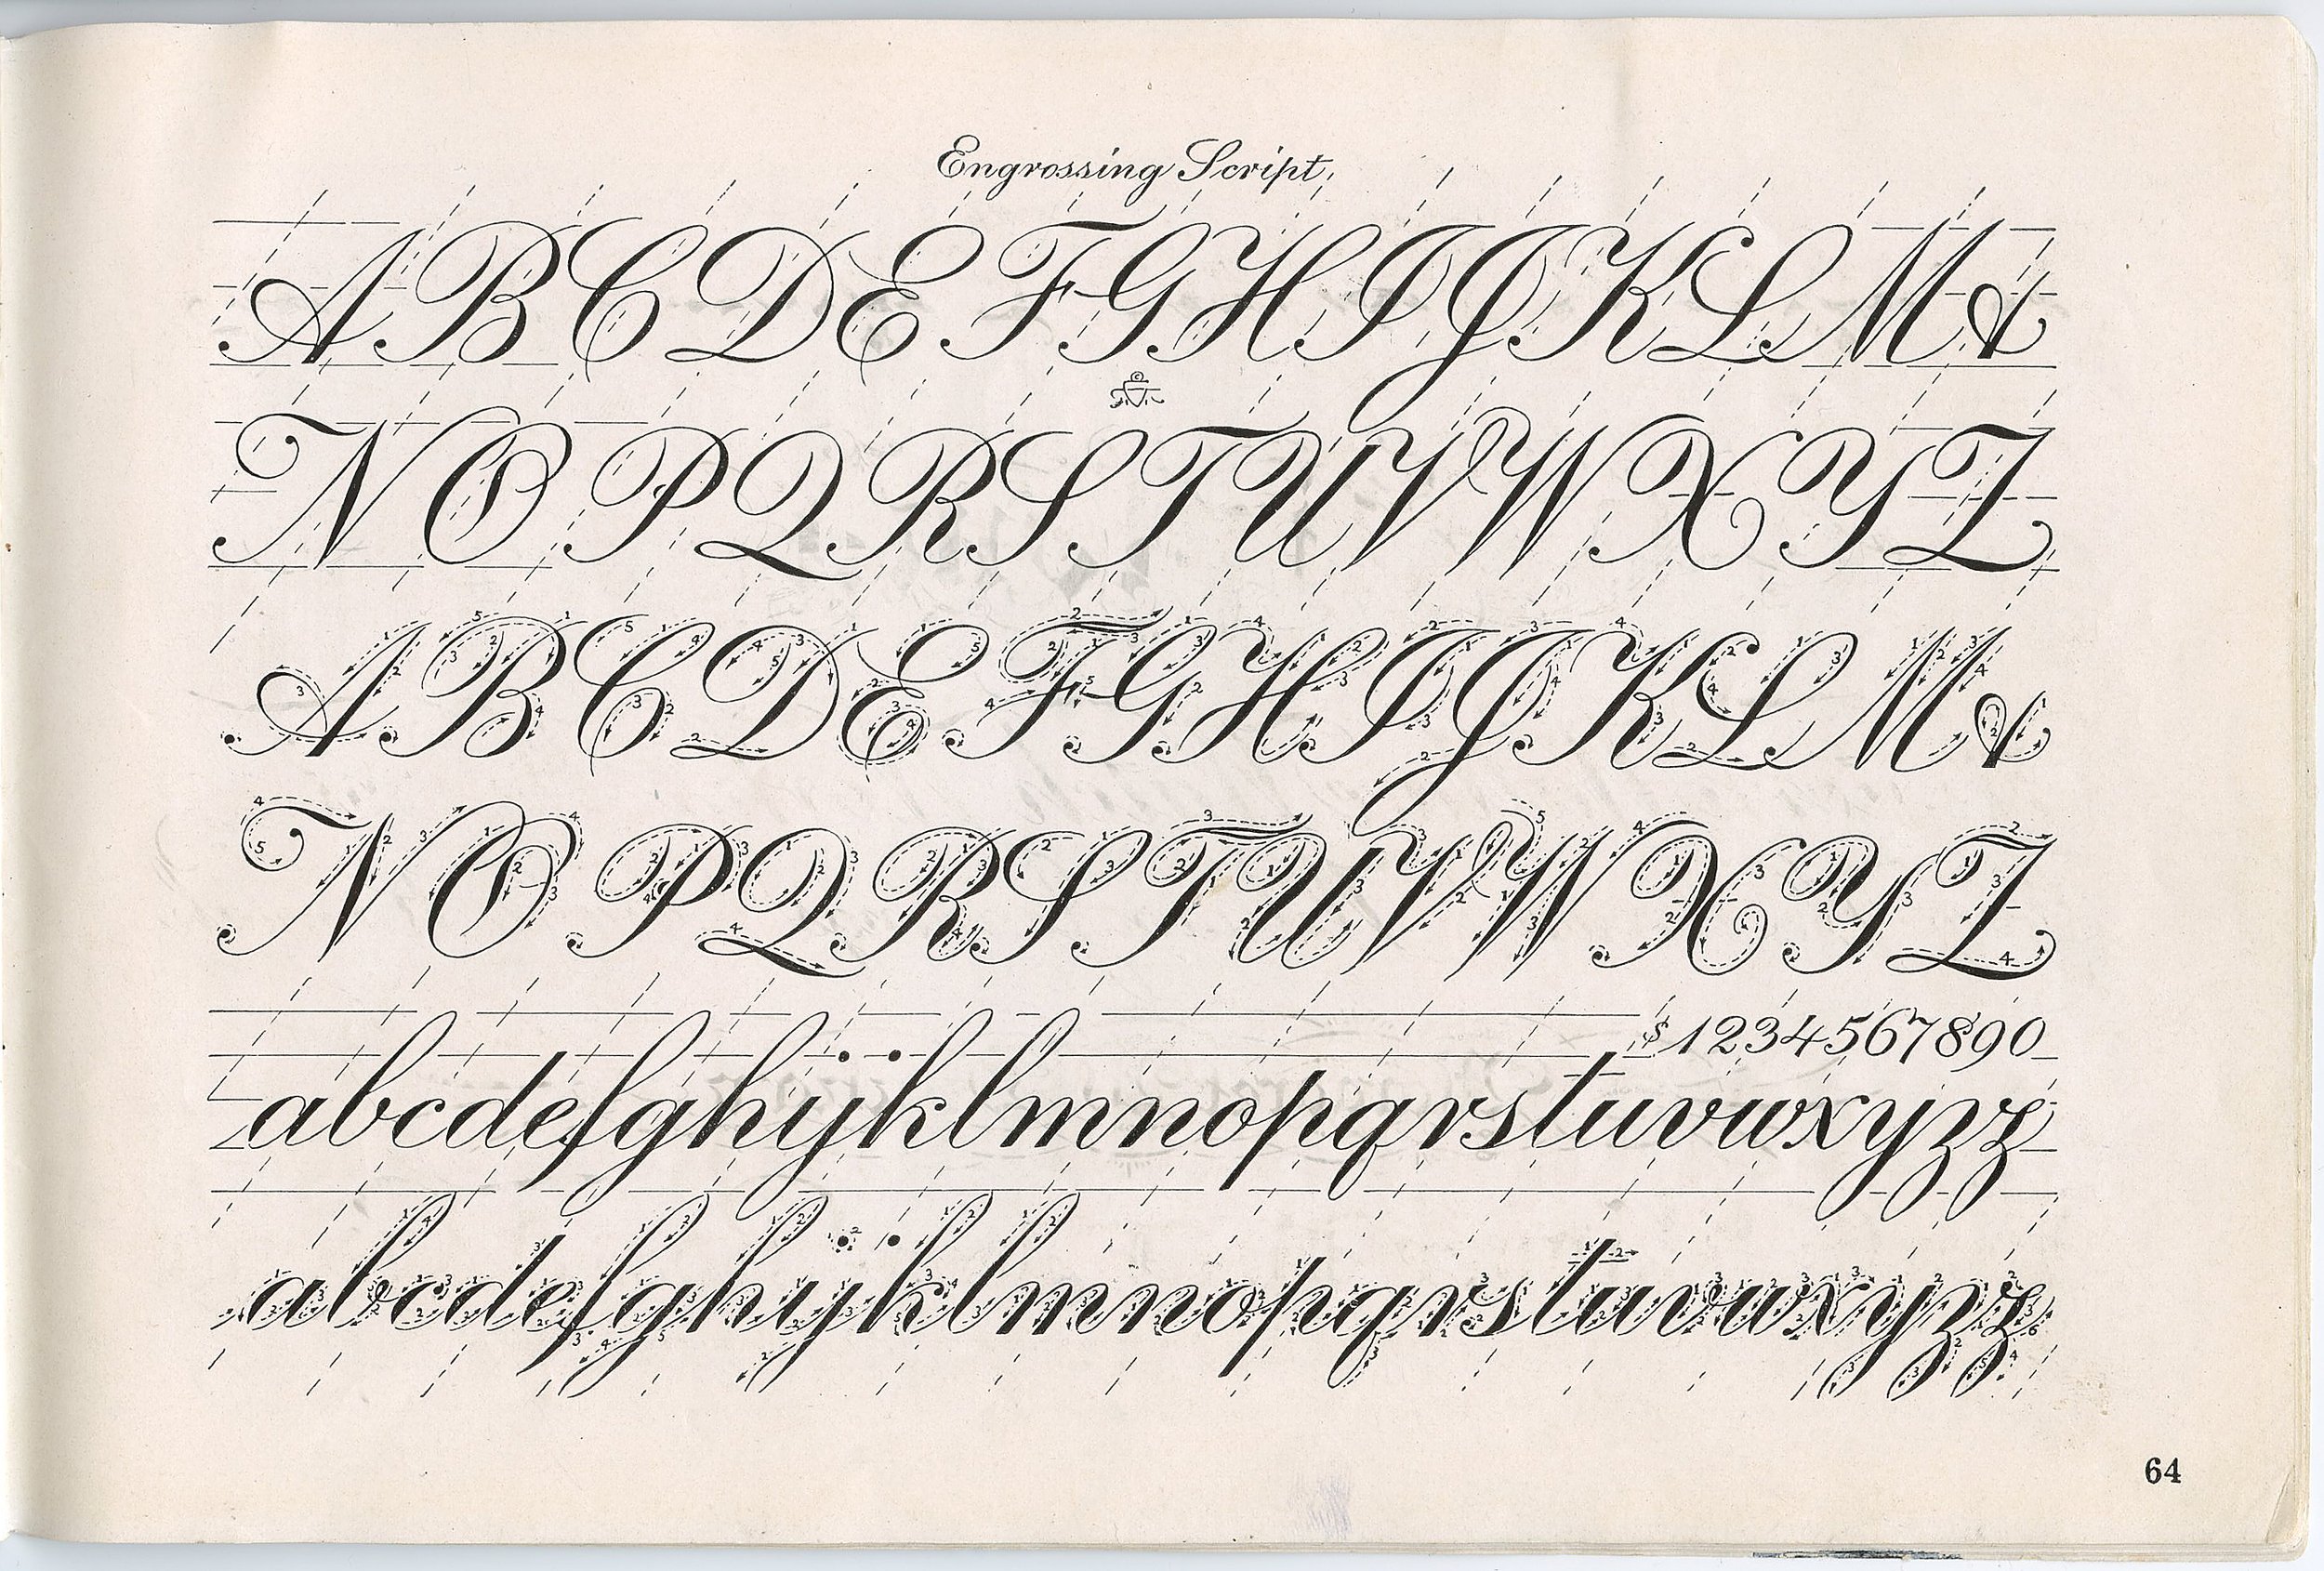 Engrossing Script
A B C D E F G H I J K L M &
N O P Q R S T U V W X Y Z
A B C D E F G H I J K L M &
N O P Q R S T U V W X Y Z
$ 1 2 3 4 5 6 7 8 9 0
a b c d e f g h i j k l m n o p q r s t u v w x y z z
a b c d e f g h i j k l m n o p q r s t u v w x y z z
64